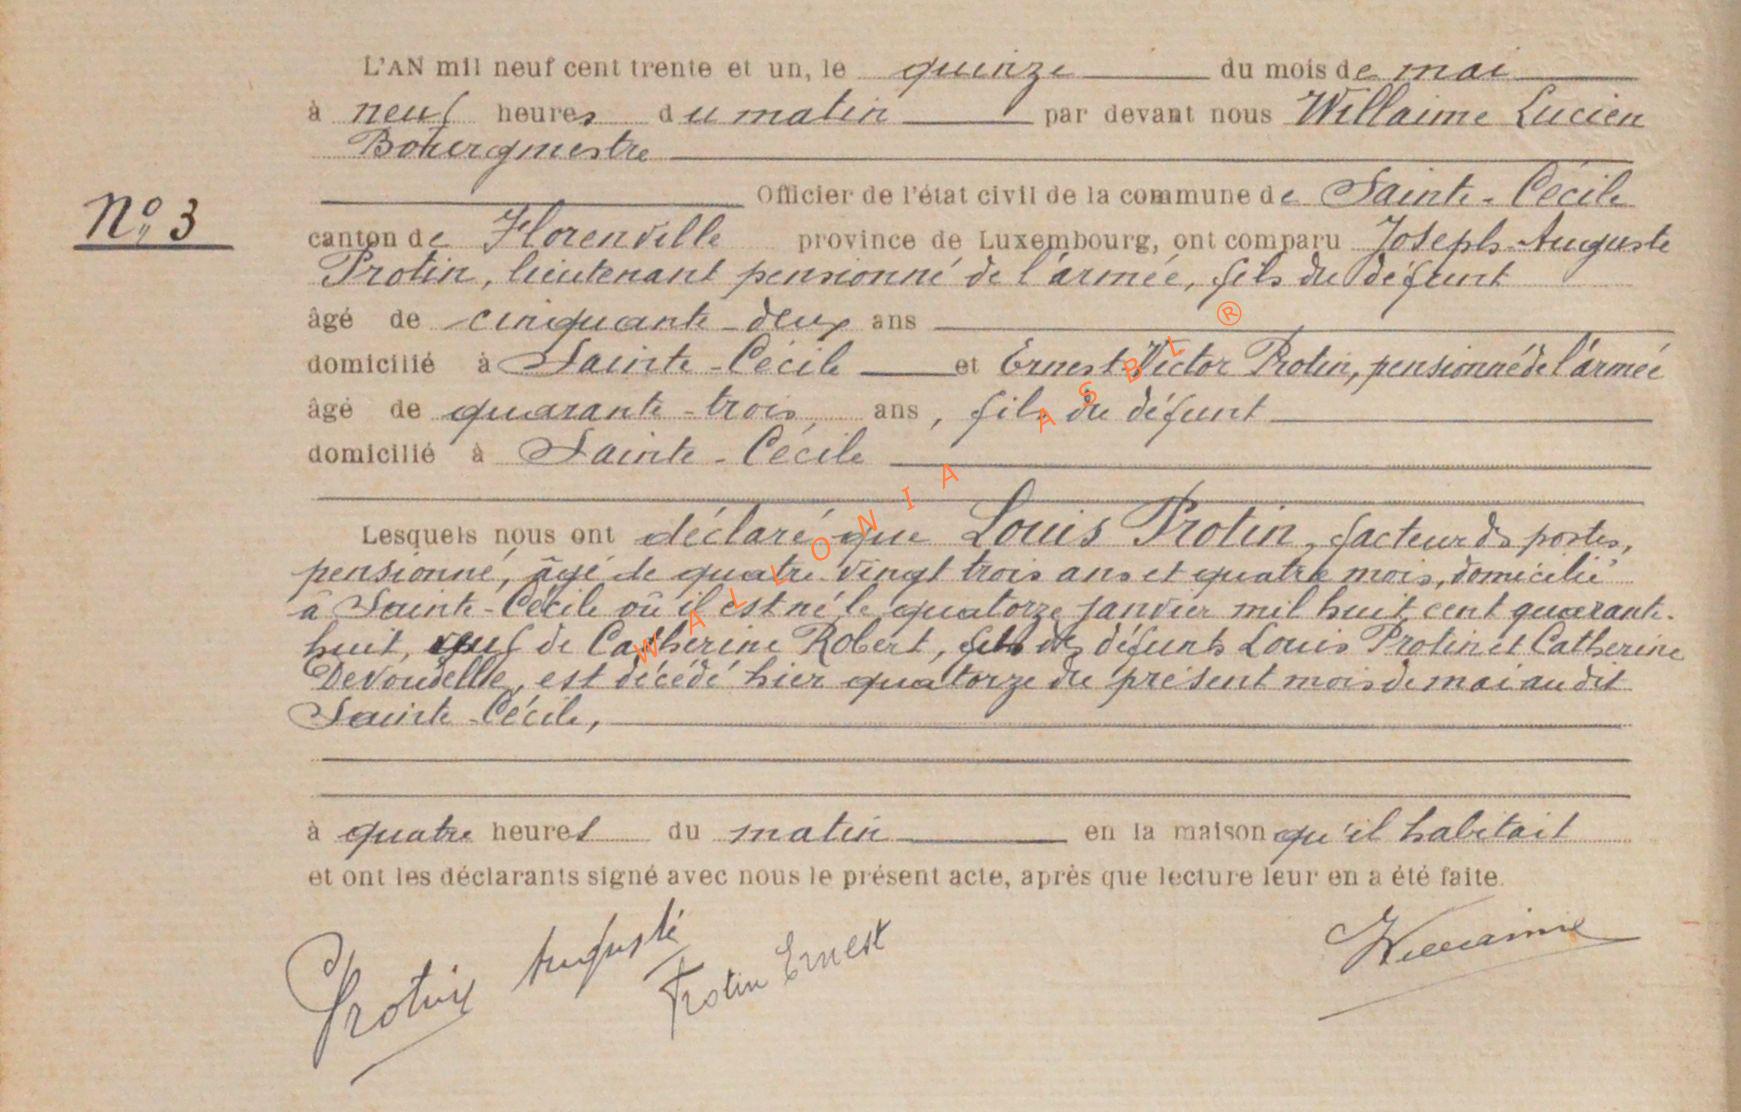 L'AN mil neuf cent trente et un, le quinze du mois de mai
à neuf heures du matin par devant nous Willaime Lucien
Bourgmestre
Officier de l'état civil de la commune de Sainte-Cécile
N° 3
canton de Florenville province de Luxembourg, ont comparu Joseph-Auguste
Protin, lieutenant pensionné de l'armée, fils du défunt
âgé de cinquante-deux ans
domicilié à Sainte-Cécile et Ernest-Victor Protin, pensionné de l'armée
âgé de quarante-trois ans, fils du défunt
domicilié à Sainte-Cécile
Lesquels nous ont déclaré que Louis Protin, facteur des postes,
pensionné, âgé de quatre-vingt trois ans et quatre mois, domicilié
à Sainte-Cécile où il est né le quatorze janvier mil huit cent quarante-
huit, veuf de Catherine Robert, fils des défunts Louis Protin et Catherine
Devoudelle, est décédé hier quatorze du présent mois de mai au dit
Sainte-Cécile,
à quatre heures du matin en la maison qu'il habitait
et ont les déclarants signé avec nous le présent acte, après que lecture leur en a été faite.
Protin Auguste
Protin Ernest
Willaime
WALLONIA ASBL ®